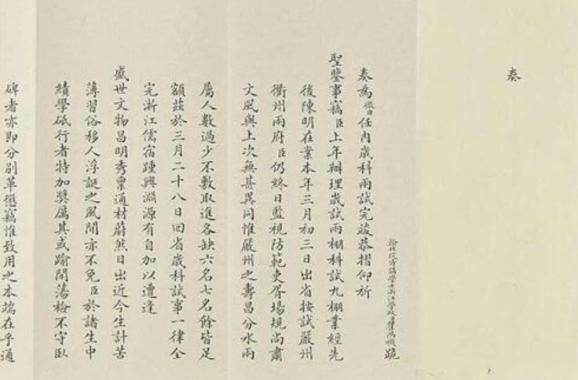 奏
跪
奏為微臣任內歲科兩試完竣恭摺仰祈
聖鑒事竊臣上年辦理歲試兩棚科試九棚業經先
後陳明在案本年三月初三日出省按試嚴州
衢州兩府臣仍終日監視防範吏胥場規尚肅
文風與上次無甚異同惟嚴州之壽昌分水兩
屬人數過少不敷取進各缺六名七名餘皆足
額茲於三月二十八日回省歲科試事一律全
完浙江儒宿踵興淵源有自加以遭逢
盛世文物昌明秀稟通材蔚然日出近今生計苦
薄習俗移人浮誕之風間亦不免臣於諸生中
績學砥行者特加獎厲其或踰閑蕩檢不守臥
碑者亦即分別革懲竊惟致用之本端在乎通